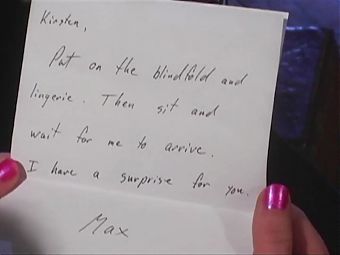 Kirsten,
Put on the blindfold and
lingerie. Then sit and
wait for me to arrive.
I have a surprise for you.
Max